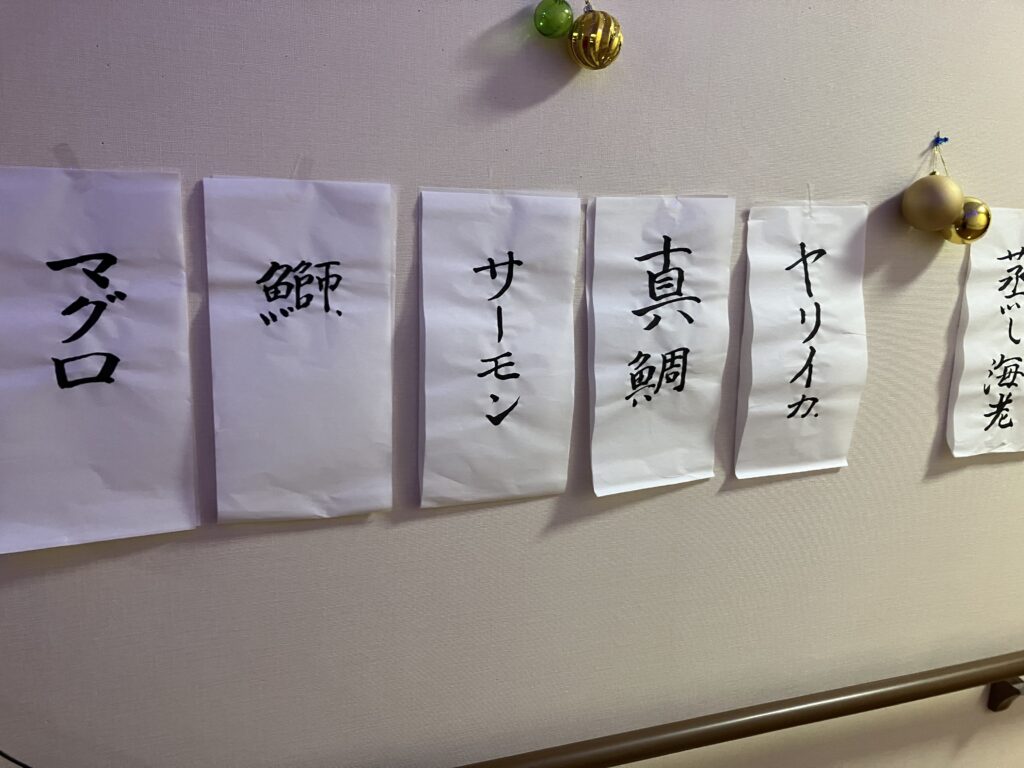 マグロ
鰤
サーモン
真鯛
ヤリイカ
蒸し海老